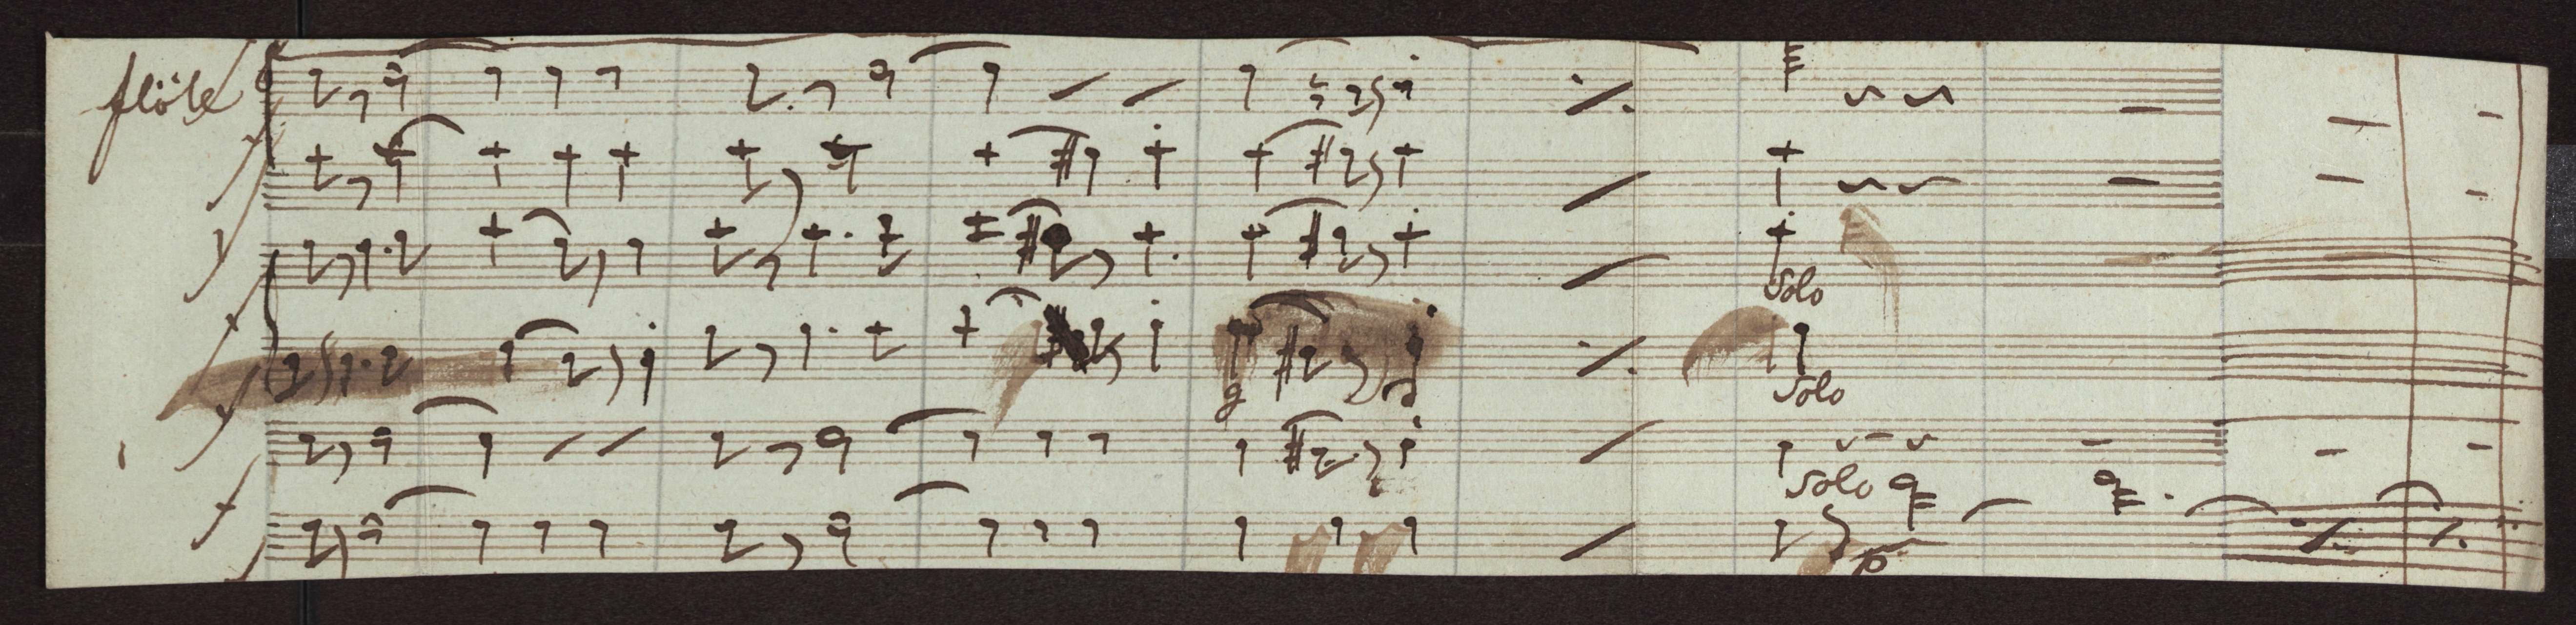 flöte
f
f
f
f
solo
g d
solo
f
solo
f
p